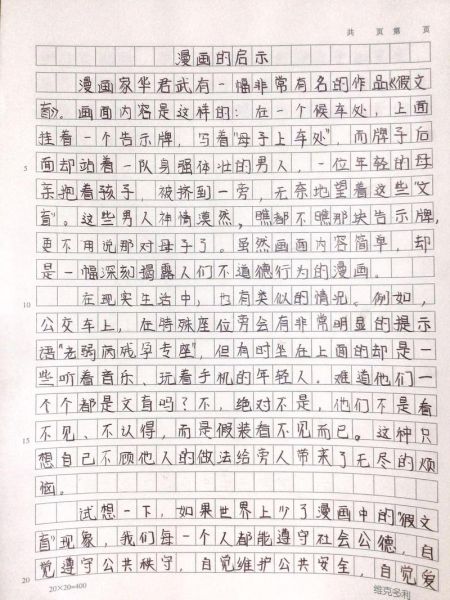 共 页 第 页
漫画的启示
漫画家华君武有一幅非常有名的作品《假文
盲》。画面内容是这样的：在一个候车处，上面
挂着一个告示牌，写着"母子上车处"，而牌子后
5 面却站着一队身强体壮的男人，一位年轻的母
亲抱着孩子，被挤到一旁，无奈地望着这些"文
盲"。这些男人神情漠然，瞧都不瞧那块告示牌，
更不用说那对母子了。虽然画面内容简单，却
是一幅深刻揭露人们不道德行为的漫画。
10 在现实生活中，也有类似的情况。例如，
公交车上，在特殊座位旁会有非常明显的提示
语"老弱病残孕专座"，但有时坐在上面的却是一
些听着音乐、玩着手机的年轻人。难道他们一
个个都是文盲吗？不，绝对不是，他们不是看
15 不见、不认得，而是假装看不见而已。这种只
想自己不顾他人的做法给旁人带来了无尽的烦
恼。
试想一下，如果世界上少了漫画中的"假文
盲"现象，我们每一个人都能遵守社会公德，自
20 觉遵守公共秩守，自觉维护公共安全，自觉爱
20×20=400 维克多利